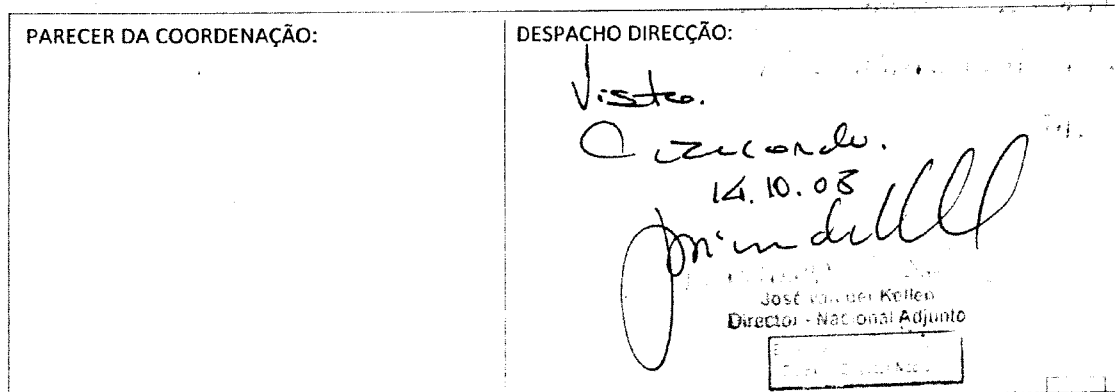 PARECER DA COORDENAÇÃO:
DESPACHO DIRECÇÃO:
Visto.
Concordo.
14.10.08
José van der Kellen
Director - Nacional Adjunto